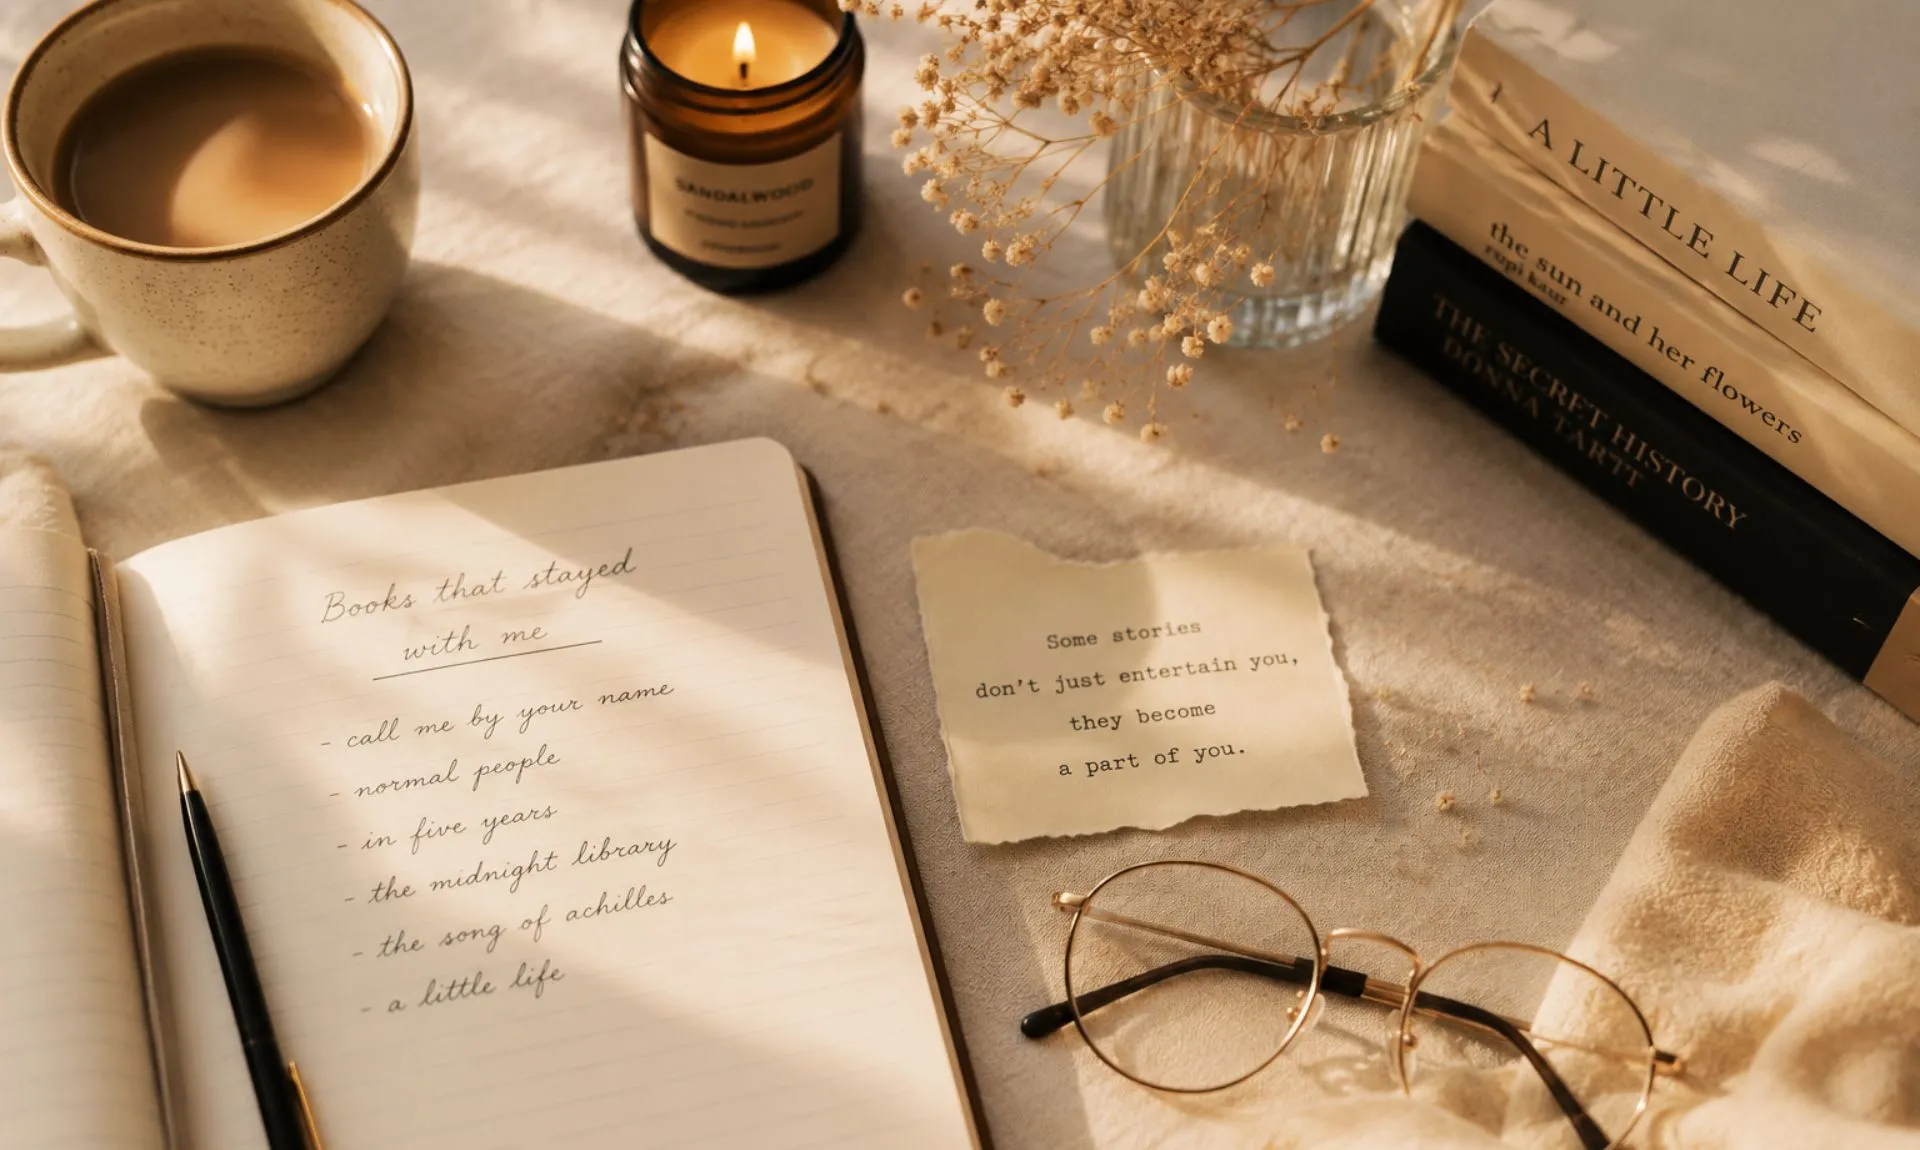 SANDALWOOD
A LITTLE LIFE
the sun and her flowers
rupi kaur
THE SECRET HISTORY
DONNA TARTT
Books that stayed
with me
- call me by your name
- normal people
- in five years
- the midnight library
- the song of achilles
- a little life
Some stories
don't just entertain you,
they become
a part of you.